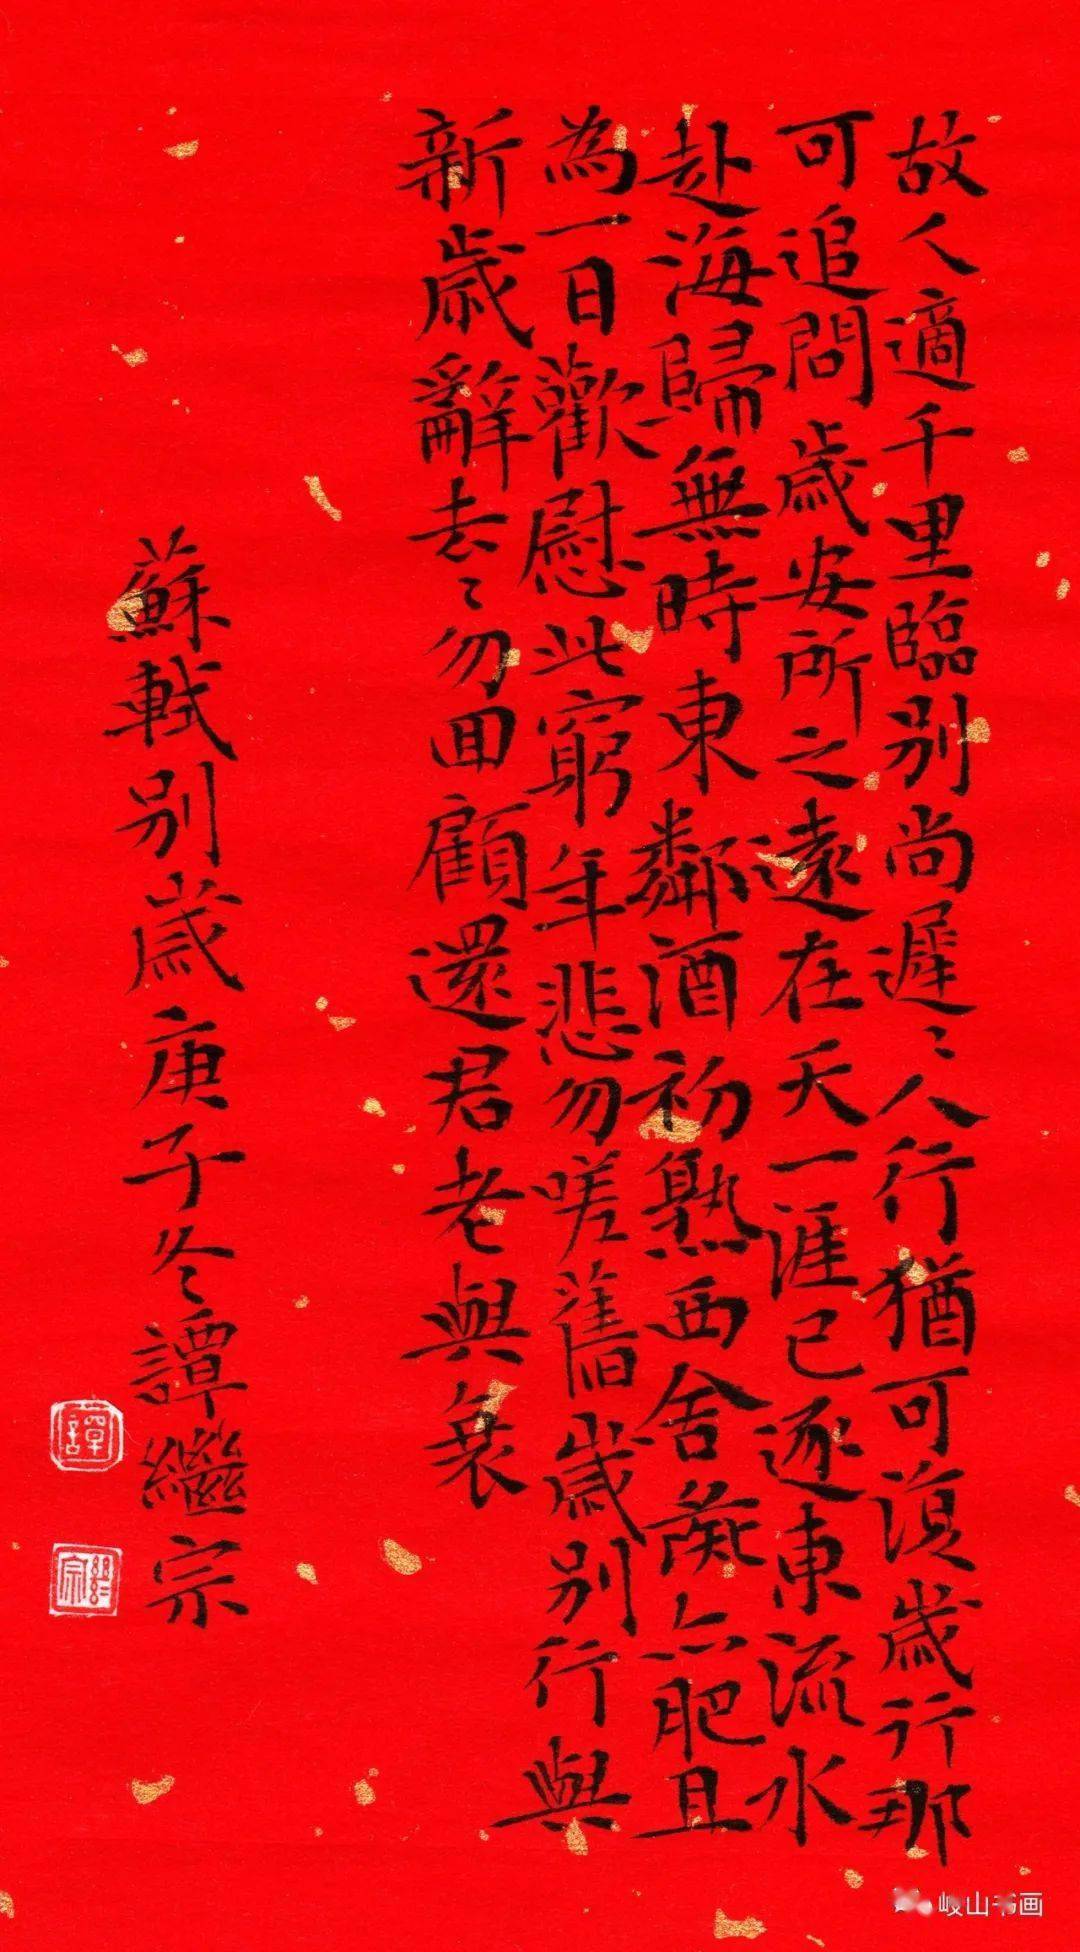 故人適千里臨别尚遲〻人行猶可復歲行那
可追問歲安所之遠在天一涯已逐東流水
赴海歸無時東鄰酒初熟西舍彘亦肥且
為一日歡慰此窮年悲勿嗟舊歲别行與
新歲辭去〻勿回顧還君老與衰
蘇軾别歲庚子冬譚繼宗
譚
繼宗
岐山书画